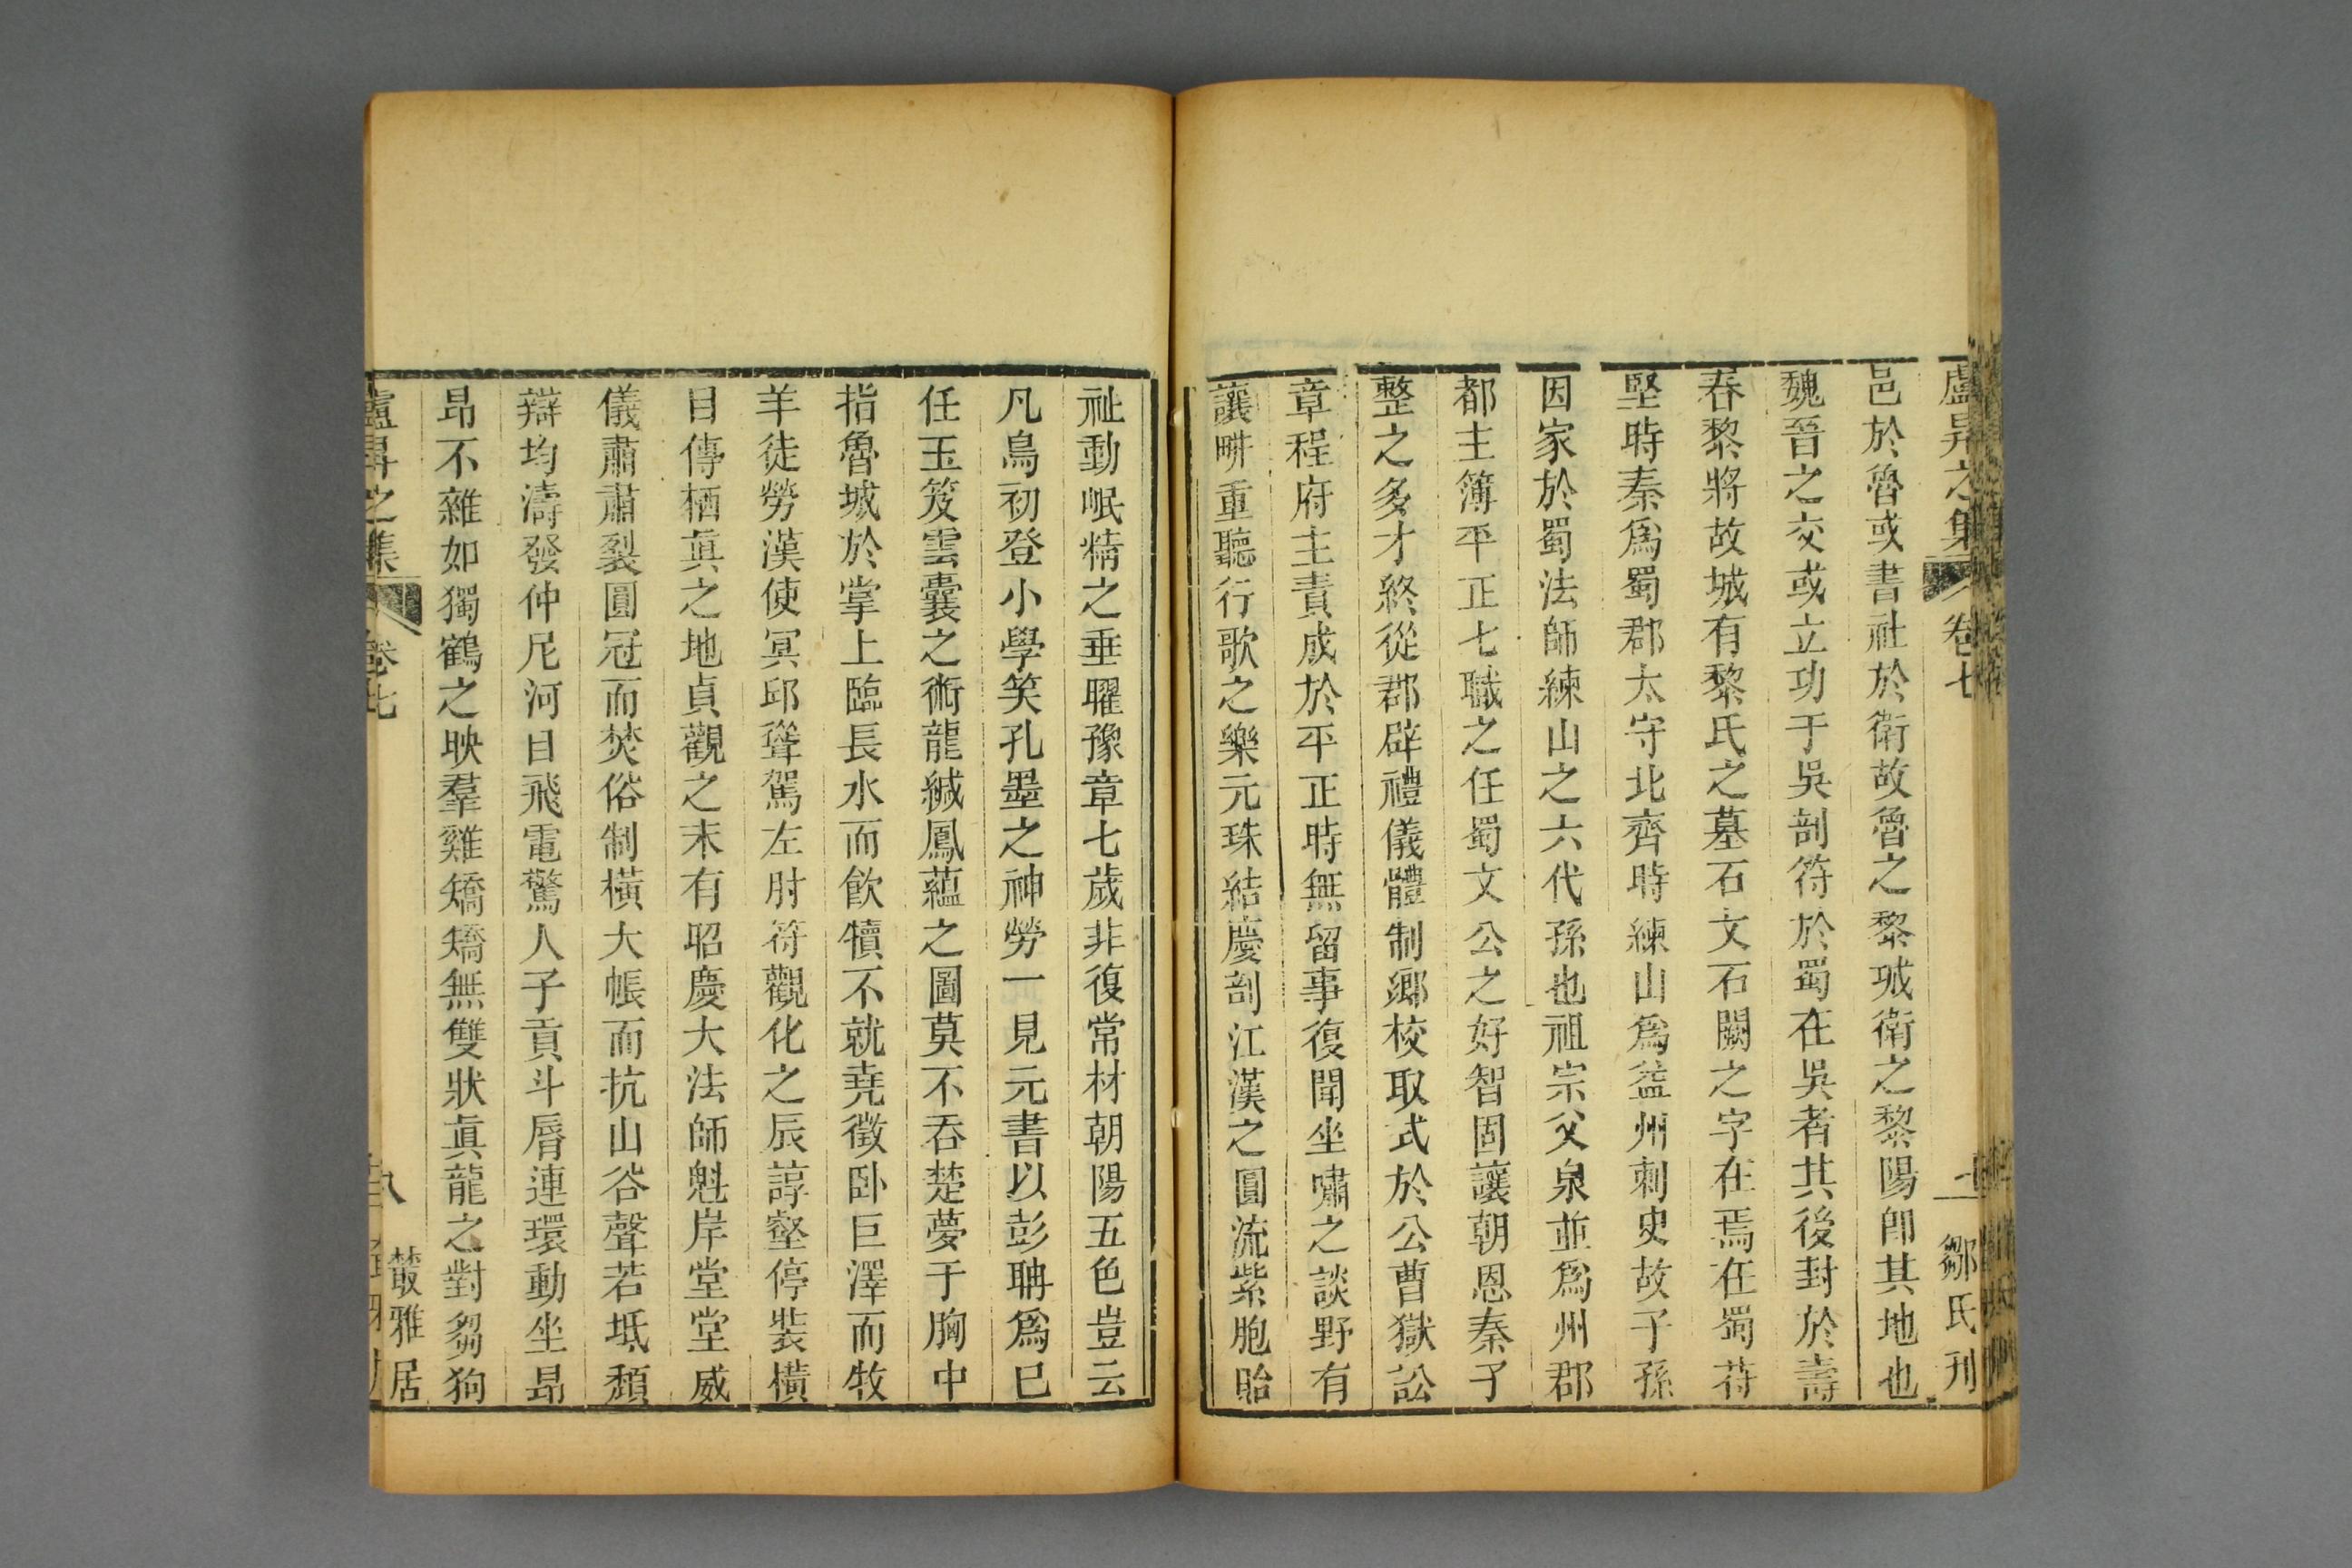 盧昇之集 卷七 七 鄒氏刋
邑於魯或書社於衛故魯之黎城衛之黎陽卽其地也
魏晉之交或立功于吳剖符於蜀在吳者其後封於壽
春黎將故城有黎氏之墓石文石闕之字在焉在蜀苻
堅時秦爲蜀郡太守北齊時練山爲益州刺史故子孫
因家於蜀法師練山之六代孫也祖宗父泉並爲州郡
都主簿平正七職之任蜀文公之好智固讓朝恩秦子
整之多才終從郡辟禮儀體制鄉校取式於公曹獄訟
章程府主責成於平正時無留事復聞坐嘯之談野有
讓畊重聽行歌之樂元珠結慶剖江漢之圓流紫胞貽
祉動岷精之垂曜豫章七歲非復常材朝陽五色豈云
凡鳥初登小學笑孔墨之神勞一見元書以彭聃爲已
任玉笈雲囊之術龍緘鳳蘊之圖莫不吞楚夢于胸中
指魯城於掌上臨長水而飮犢不就堯徵卧巨澤而牧
羊徒勞漢使冥邱聳駕左肘符觀化之辰諄壑停裝橫
目傳栖眞之地貞觀之末有昭慶大法師魁岸堂堂威
儀肅肅裂圓冠而焚俗制橫大帳而抗山谷聲若坻頽
辯均濤發仲尼河目飛電驚人子貢斗脣連環動坐昂
昂不雜如獨鶴之映羣雞矯矯無雙狀眞龍之對芻狗
盧昇之集 卷七 八 叢雅居